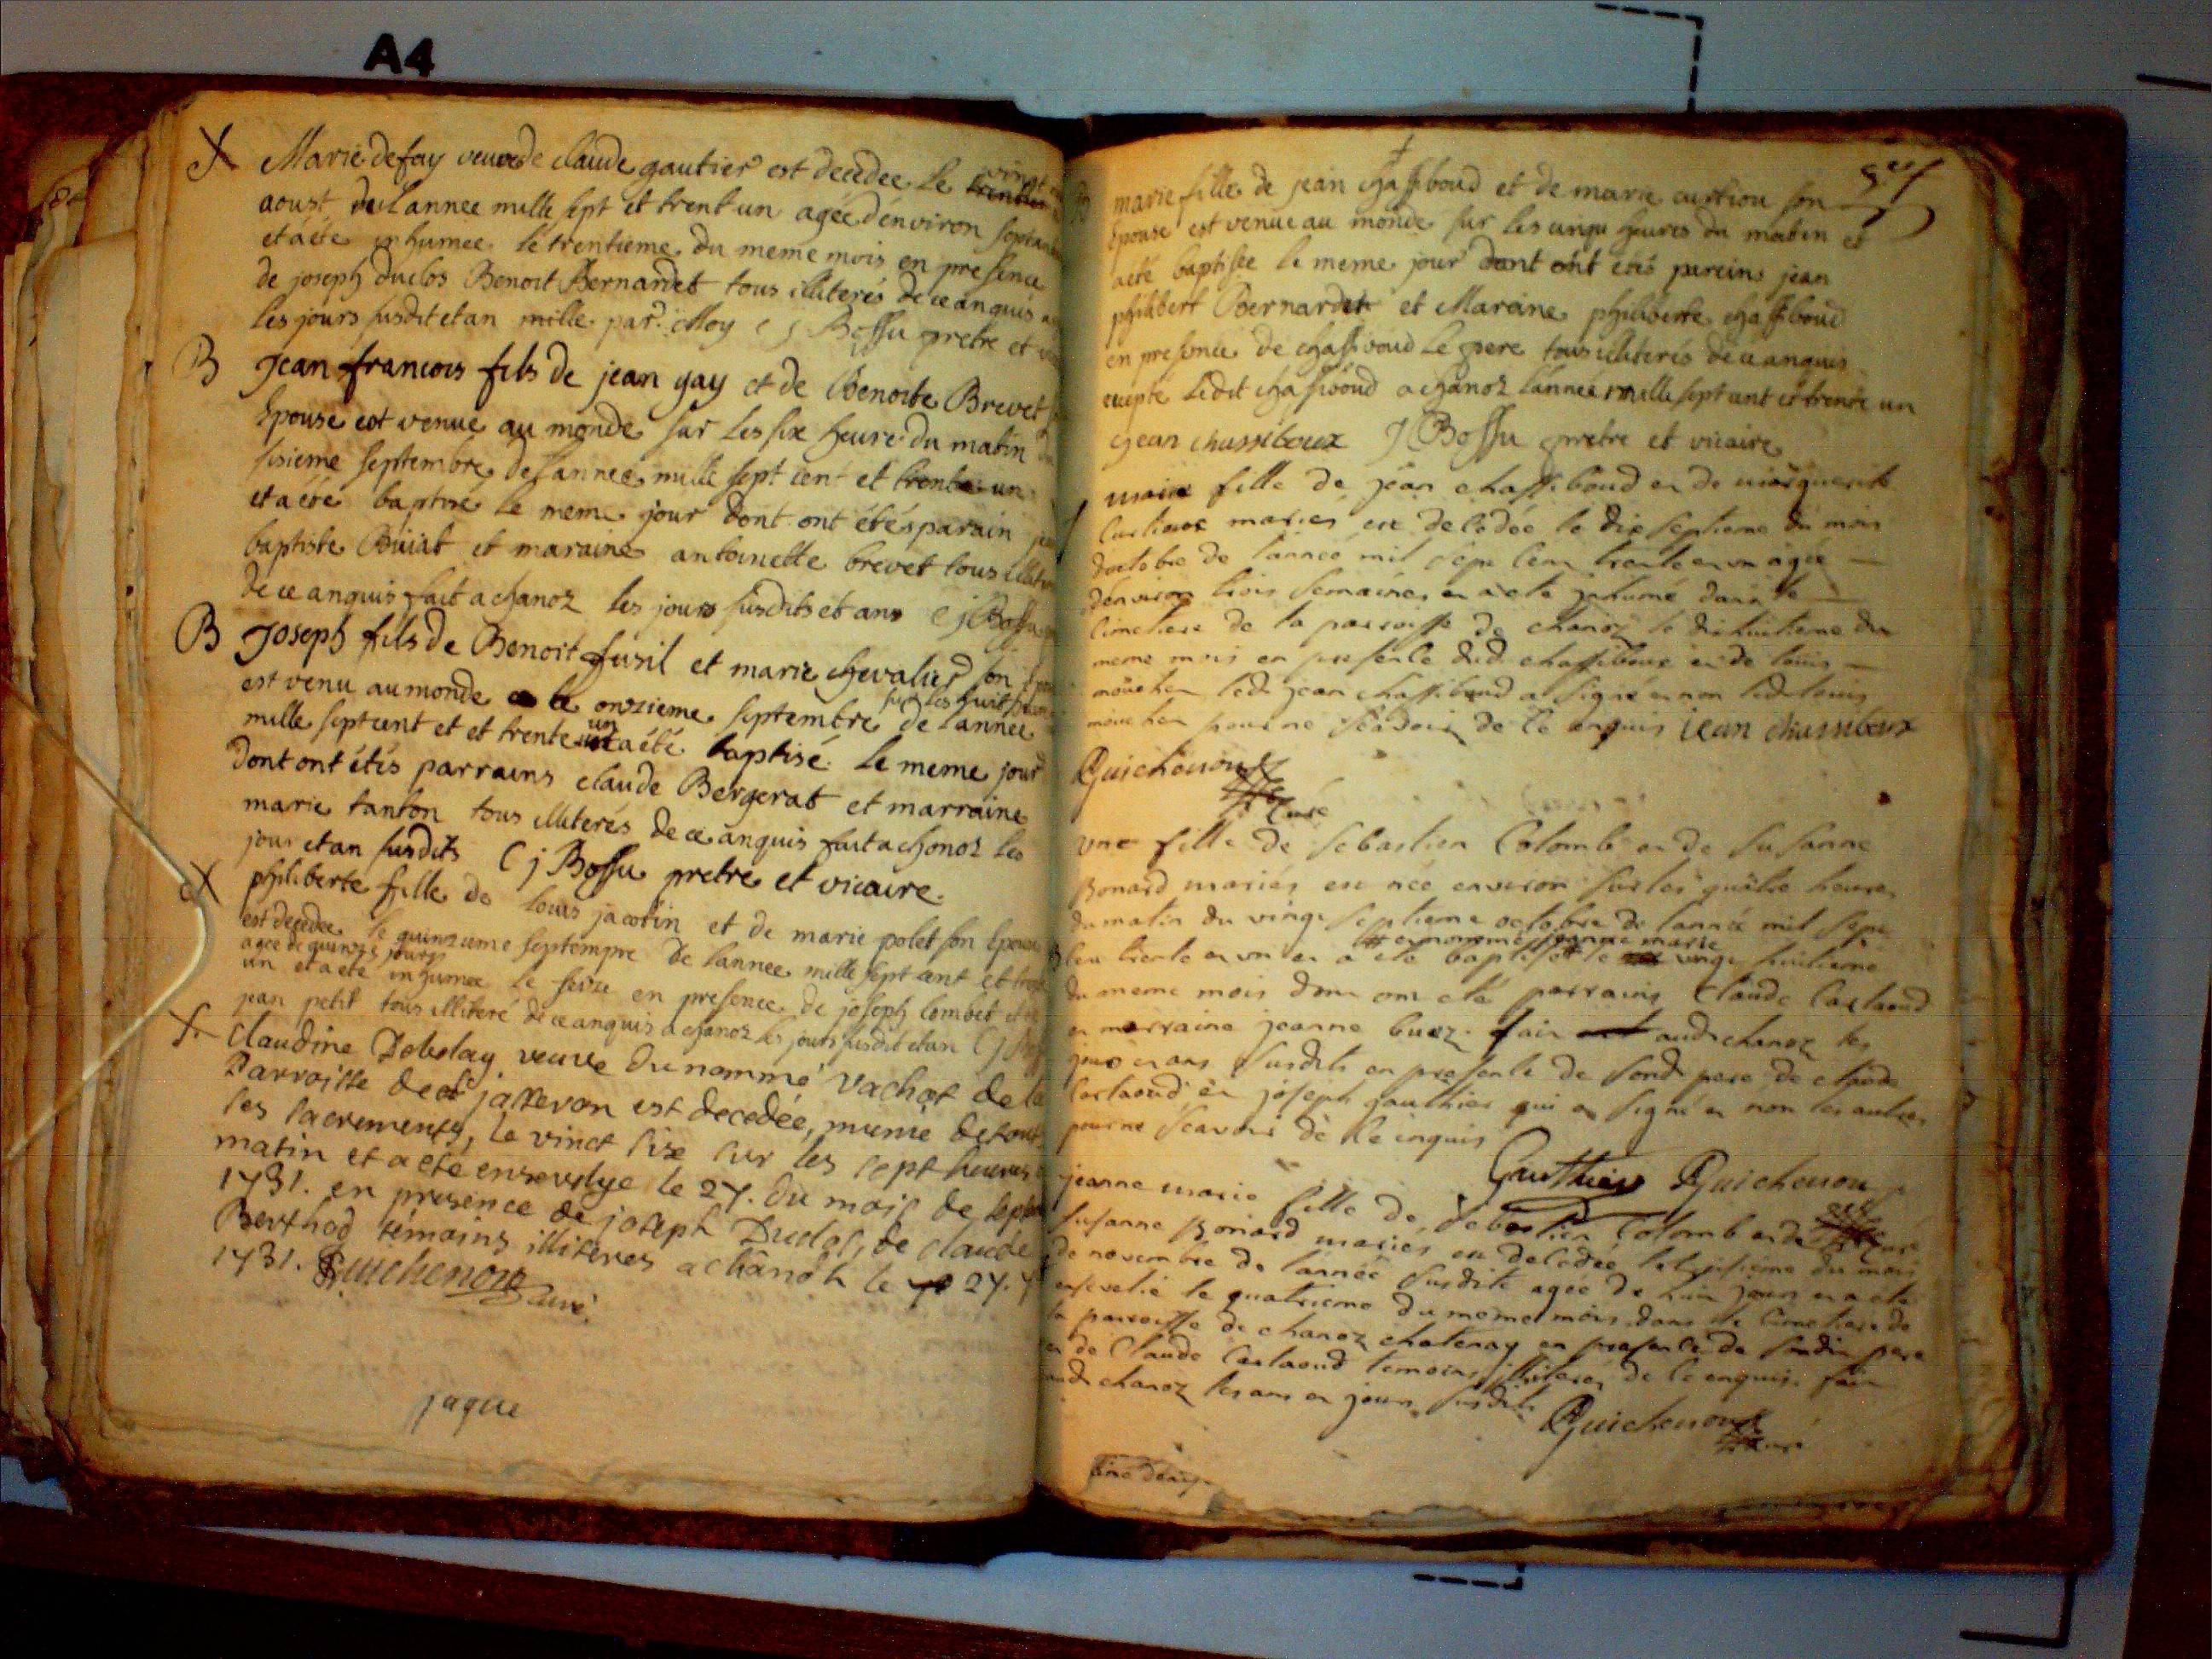 A4
Marie defay veuve de claude gautier est decedee le vingt
aoust de lannee mille sept et trent un agée d'environ septante
et a été inhumee le trentieme du meme mois en presence
de joseph duclos Benoit Bernardet tous illiterés de ce anquis
les jours susdit et an mille par Moy C j Bossu pretre et
B Jean francois fils de jean gay et de Benoite Brevet
Epouse est venue au monde sur les six heure du matin
sisieme septembre de lannee mille sept cent et trente un
et a été baptisé le meme jour dont ont étés parain
baptiste Buiat et maraine antoinette brevet tous
de ce anquis fait a chanoz les jours susdits et ans C j Bossu
B Joseph fils de Benoit fusil et marie chevalier son
est venu au monde le onzieme septembre sur les huit de lannee
mille sept cent et et trente un a été baptisé le meme jour
dont ont étés parrains claude Bergerat et marraine
marie tanton tous illiterés de ce anquis fait a chonoz les
jour et an susdits C j Bossu pretre et vicaire
philiberte fille de louis jacotin et de marie polet son Epouse
est decedee le quinzieme septempre de lannee mille sept cent et
agee de quinze jours
un et a été inhumee le seize en presence de joseph lombet
jean petit tous illiteré de ce anquis a chanoz les jours susdit et an C j
Claudine Debolay veuve du nommé vachot de la
Parroisse de st jasseron est decedée, munie de tous
les sacrements, le vinct sixe sur les sept heures
matin et a été ensevelye le 27. du mois de
1731. en presence de joseph Duclos, de claude
Berthod temoins illiteres a chanoz le 27.
1731. Guichenon curé.
jaque
marie fille de jean chassiboud et de marie curtiou son
Epouse est venue au monde sur les cinqu heures du matin et
a eté baptisee le meme jour dont ont étés pareins jean
philibert Bernardet et Mareine philiberte chassiboud
en presence de chassiboud le pere tous illiterés de ce anquis
excepte ledit chassiboud a chanoz lannee mille sept cent et trente un
jean chassiboux J Bossu pretre et vicaire
marie fille de jean chassiboud et de marguerite
Curtioux mariés est decedée le dix septieme du mois
doctobre de lannee mil sept cent trente et un agée
denviron trois semaines et a eté inhumé dans le
Cimetiere de la parroisse de chanoz le dix huitieme du
meme mois en presence dud chassiboux et de louis
mouchon led jean chassiboud a signé et non led louis
mouchon pour ne scavoir de ce enquis jean chassiboux
Guichenon
Curé
une fille de sebastien Colomb et de susanne
Bonard mariés est née environ sur les quatre heures
du matin du vingt septieme octobre de lannée mil sept
et nommée jeanne marie
cent trente et un et a eté baptisée le vingt huitieme
du meme mois dont ont eté parrains Claude Carlaoud
et marraine jeanne buez fait aud chanoz les
jour et ans susdits en presence de sond pere de claude
Carlaoud et joseph gauthier qui a signé et non les autres
pour ne scavoir de ce enquis
Gauthier Guichenon
jeanne marie fille de sebastien Colomb et de
susanne Bonard mariés est decedée le troisieme du mois
de novembre de lannée susdite agée de huit jours et a eté
ensevelie le quatrieme du meme mois dans le Cimetiere de
la parroisse de chanoz chatenay en presence de sondit pere
et de Claude Carlaoud temoins illiterés de ce enquis fait
aud chanoz les ans et jours susdits
Guichenon